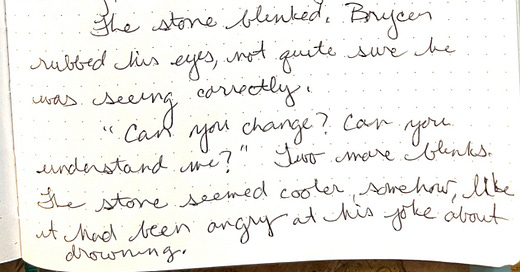 The stone blinked. Brycen
rubbed his eyes, not quite sure he
was seeing correctly.
"Can you change? Can you
understand me?" Two more blinks.
The stone seemed cooler, somehow, like
it had been angry at his joke about
drowning.